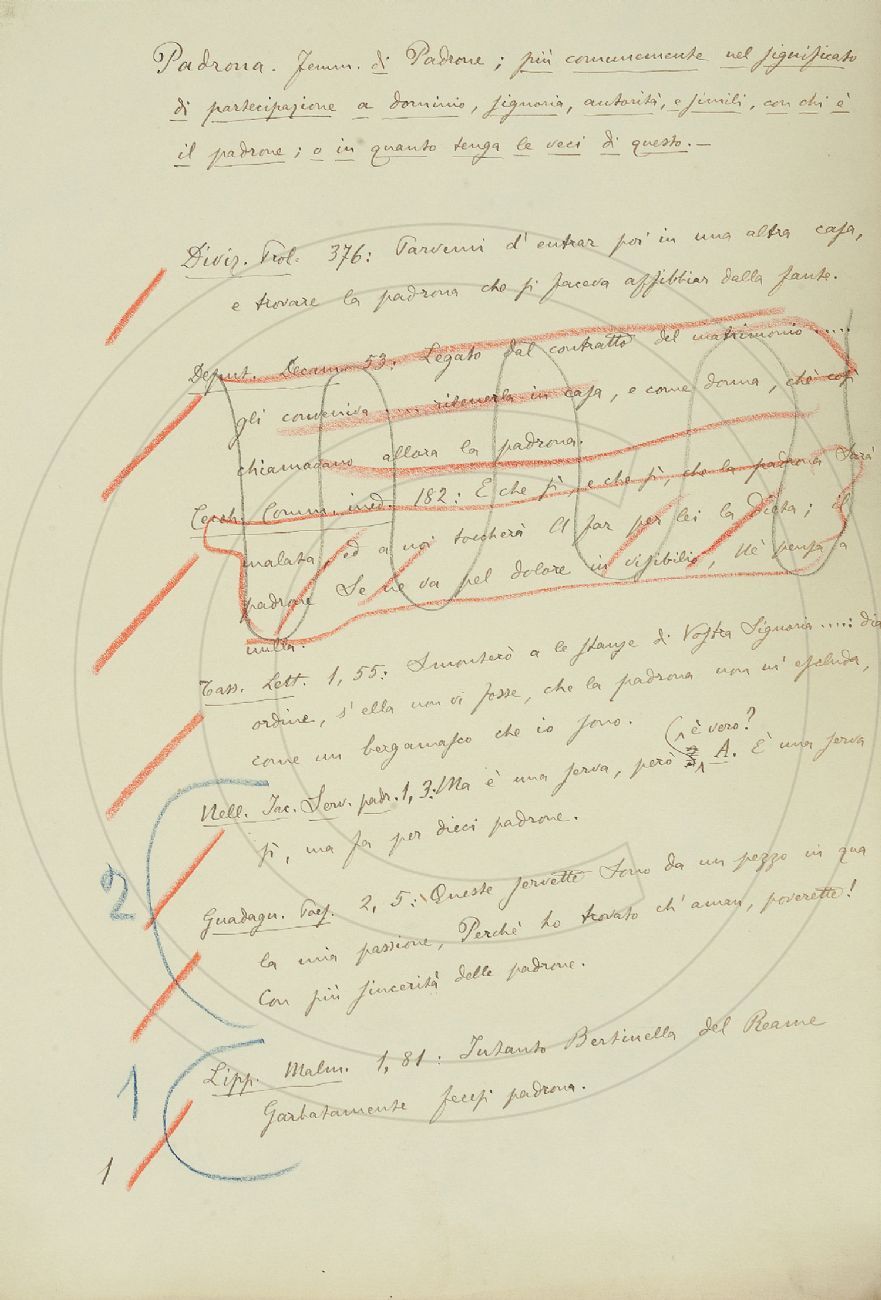 Padrona. Femm. di Padrone; più comunemente nel significato
di partecipazione a dominio, signoria, autorità, e simili, con chi è
il padrone; o in quanto tenga le veci di questo.—
Diviz. Trol. 376: Parvemi d'entrar poi in una altra casa,
e trovare la padrona che si faceva affibbiar dalla fante.
Deput. Decam. 53: Legato dal contratto del matrimonio .....
gli conveniva .... ritenerla in casa, e come donna, chè così
chiamavano allora la padrona.
Cecch. Comm. ined. 182: E che sì, e che sì, che la padrona Sarà
malata, ed a noi toccherà A far per lei la dieta; il
padrone Se ne va pel dolore in visibilio, Nè pensa a
nulla.
Tass. Lett. 1, 55: Smonterò a le stanze di Vostra Signoria ....: dia
ordine, s'ella non vi fosse, che la padrona non m'escluda,
come un bergamasco che io sono.
è vero?
Nell. Iac. Serv. padr. 1, 3: Ma è una serva, però A. È una serva
sì, ma fa per dieci padrone.
Guadagn. Poes. 2, 5: Queste servette Sono da un pezzo in qua
la mia passione, Perchè ho trovato ch'aman, poverette!
Con più sincerità delle padrone.
2
Lipp. Malm. 1, 81: Intanto Bertinella del Reame
Garbatamente fecesi padrona.
1
1